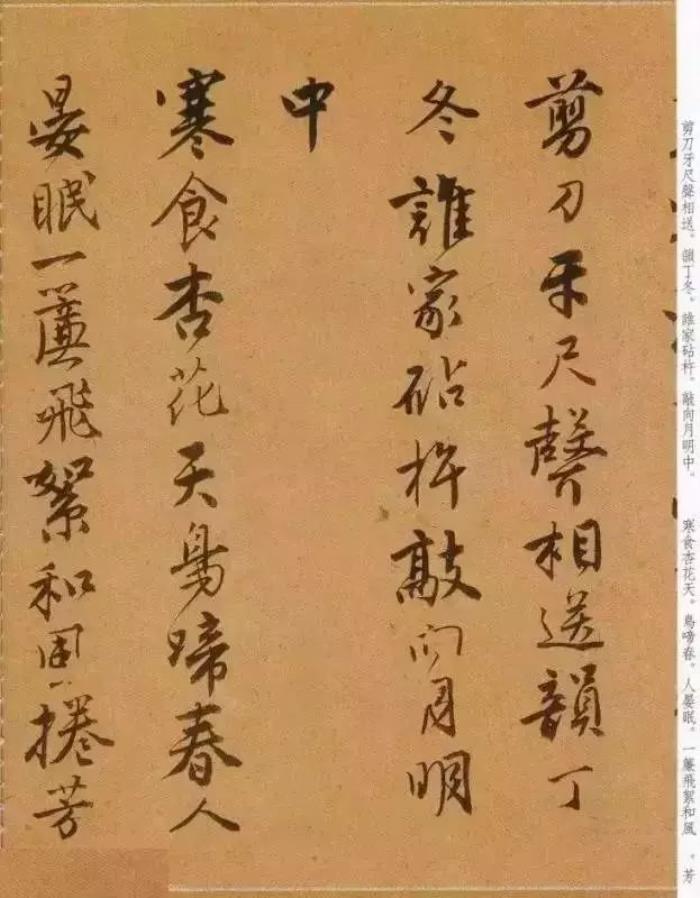 剪刀牙尺聲相送。韻丁冬。誰家砧杵。敲向月明中。 寒食杏花天。鳥啼春。人晏眠。一簾飛絮和風 。芳
剪刀牙尺聲相送韻丁
冬誰家砧杵敲向月明
中
寒食杏花天鳥啼春人
晏眠一簾飛絮和風捲芳